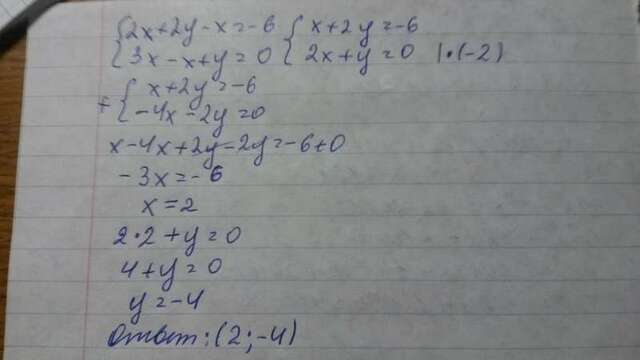 {2x+2y-x=-6 {x+2y=-6
{3x-x+y=0 {2x+y=0 |·(-2)
+{x+2y=-6
{-4x-2y=0
x-4x+2y-2y=-6+0
-3x=-6
x=2
2·2+y=0
4+y=0
y=-4
Ответ:(2;-4)